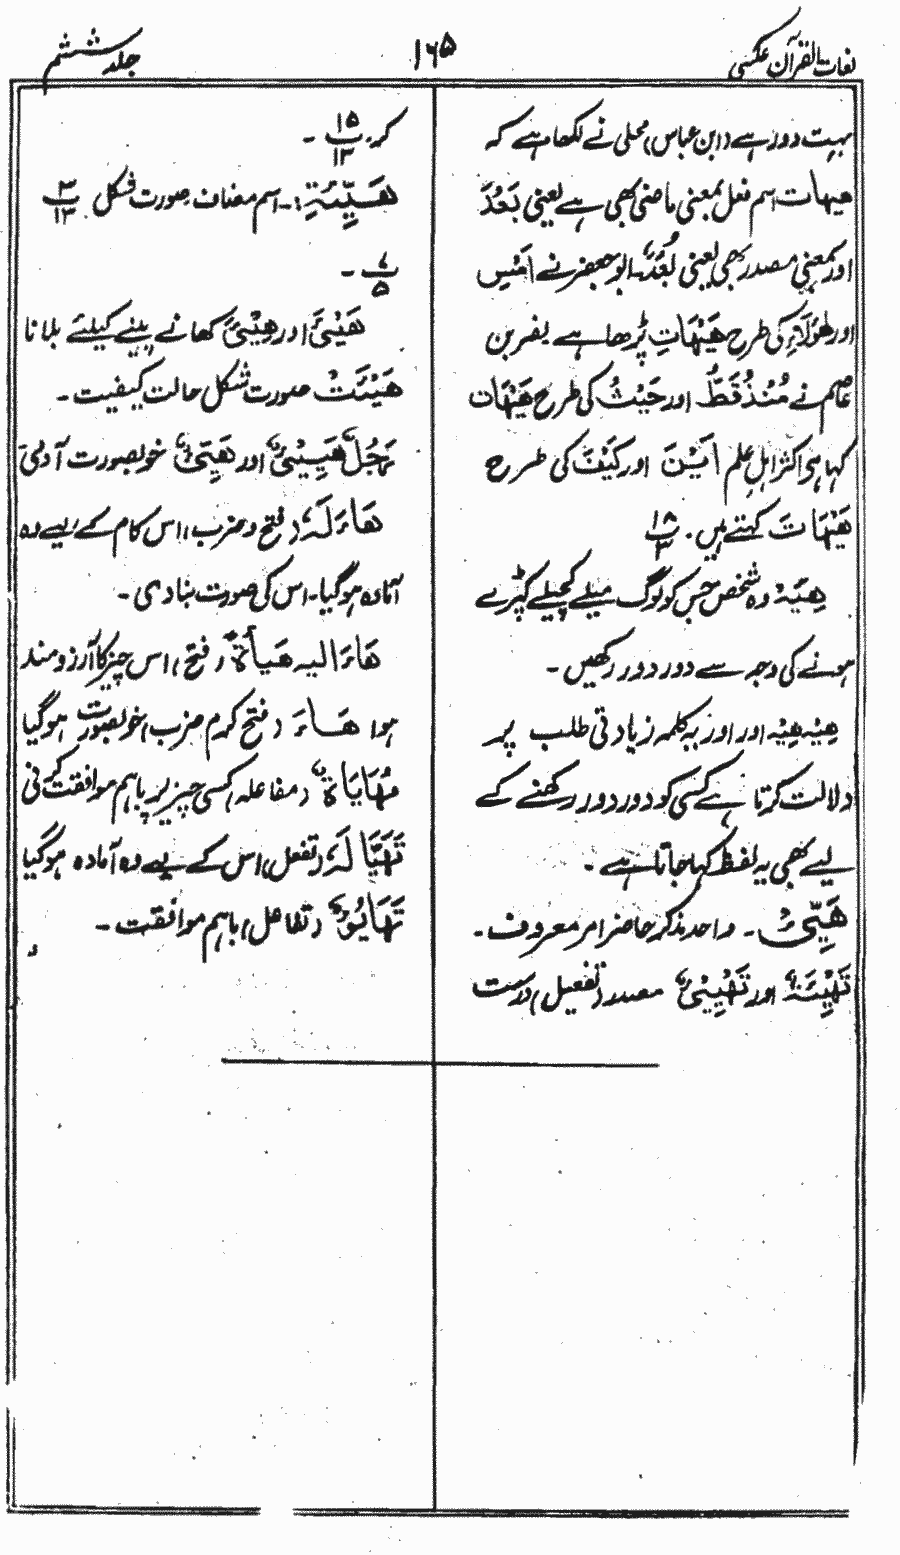 لغات القرآن عکسی
۱۶۵
جلد ششم
بہت دور ہے (ابن عباس) محلی نے لکھا ہے کہ
ھیہات اسم فعل بمعنی ماضی بھی ہے یعنی بَعُدَ
اور بمعنی مصدر بھی یعنی بُعْدٌ۔ ابو جعفر نے اَمْسِ
اور ھٰؤلَاءِ کی طرح ھَیْهَاتِ پڑھا ہے یفر بن
عاصم نے مُنْذُ قَطُّ اور حَیْثُ کی طرح ھَیْهَاتُ
کہا ہی اکثر اہل علم اَیْنَ اور کَیْفَ کی طرح
ھَیْهَاتَ کہتے ہیں۔ ۱۸/۳
ھِیْدٌ وہ شخص جس کو لوگ میلے کچیلے کپڑے
ہونے کی وجہ سے دور دور رکھیں۔
ھِیْهِ ھِیْهِ اور اور یہ کلمہ زیادتی طلب پر
دلالت کرتا ہے کسی کو دور دور رکھنے کے
لیے بھی یہ لفظ کہا جاتا ہے۔
ھَیِّئْ۔ واحد مذکر حاضر امر معروف۔
تَهْیِئَةٌ اور تَهْیِیْئٌ مصدر (تفعیل) درست
کر۔ ۱۵/۱۳
ھَیْئَةِ:۔ اسم مضاف صورت شکل ۳/۱۳
۷/۵۔
ھَنِیْئ اور ھَنِیْئ کھانے پینے کیلئے بلانا
ھَیْئَتْ صورت شکل حالت کیفیت۔
رَجُلٌ ھَیِیْئٌ اور ھَیِئٌ خوبصورت آدمی
ھَاءَ لَہٗ (فتح و ضرب) اس کام کے لیے وہ
آمادہ ہوگیا۔ اس کی صورت بنا دی۔
ھَاءَ الیہ ھَیأَةً (فتح) اس چیز کا آرزومند
ہوا ھَاءَ (فتح کرم ضرب) خوبصورت ہوگیا
مُهَایَاةٌ (مفاعلہ) کسی چیز پر باہم موافقت کرنی
تَهَیَّأَ لَہٗ (تفعل) اس کے لیے وہ آمادہ ہوگیا
تَهَایُؤٌ (تفاعل) باہم موافقت۔